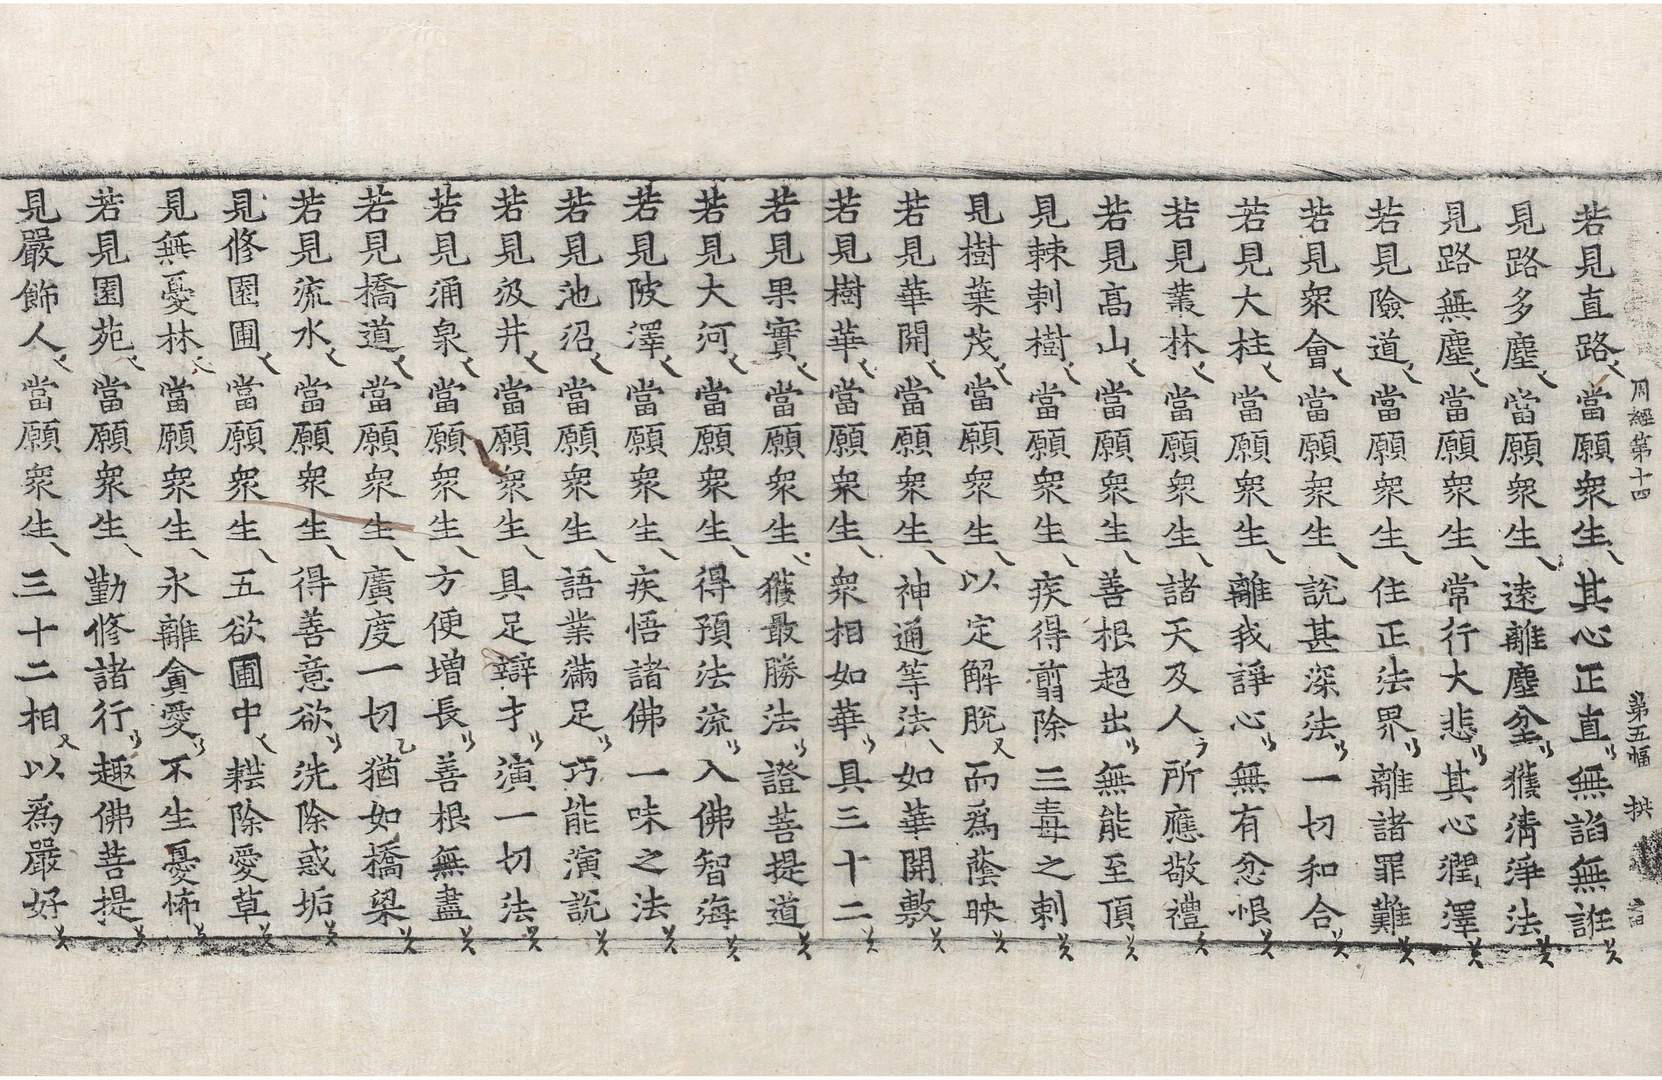 周經第十四 第五幅 拱
若見直路當願衆生其心正直無諂無誑
見路多塵當願衆生遠離塵坌獲淸淨法
見路無塵當願衆生常行大悲其心潤澤
若見險道當願衆生住正法界離諸罪難
若見衆會當願衆生說甚深法一切和合
若見大柱當願衆生離我諍心無有忿恨
若見叢林當願衆生諸天及人所應敬禮
若見高山當願衆生善根超出無能至頂
見棘刺樹當願衆生疾得翦除三毒之刺
見樹葉茂當願衆生以定解脫而爲蔭映
若見華開當願衆生神通等法如華開敷
若見樹華當願衆生衆相如華具三十二
若見果實當願衆生獲最勝法證菩提道
若見大河當願衆生得預法流入佛智海
若見陂澤當願衆生疾悟諸佛一味之法
若見池沼當願衆生語業滿足巧能演說
若見汲井當願衆生具足辯才演一切法
若見涌泉當願衆生方便增長善根無盡
若見橋道當願衆生廣度一切猶如橋梁
若見流水當願衆生得善意欲洗除惑垢
見修園圃當願衆生五欲圃中耘除愛草
見無憂林當願衆生永離貪愛不生憂怖
若見園苑當願衆生勤修諸行趣佛菩提
見嚴飾人當願衆生三十二相以爲嚴好